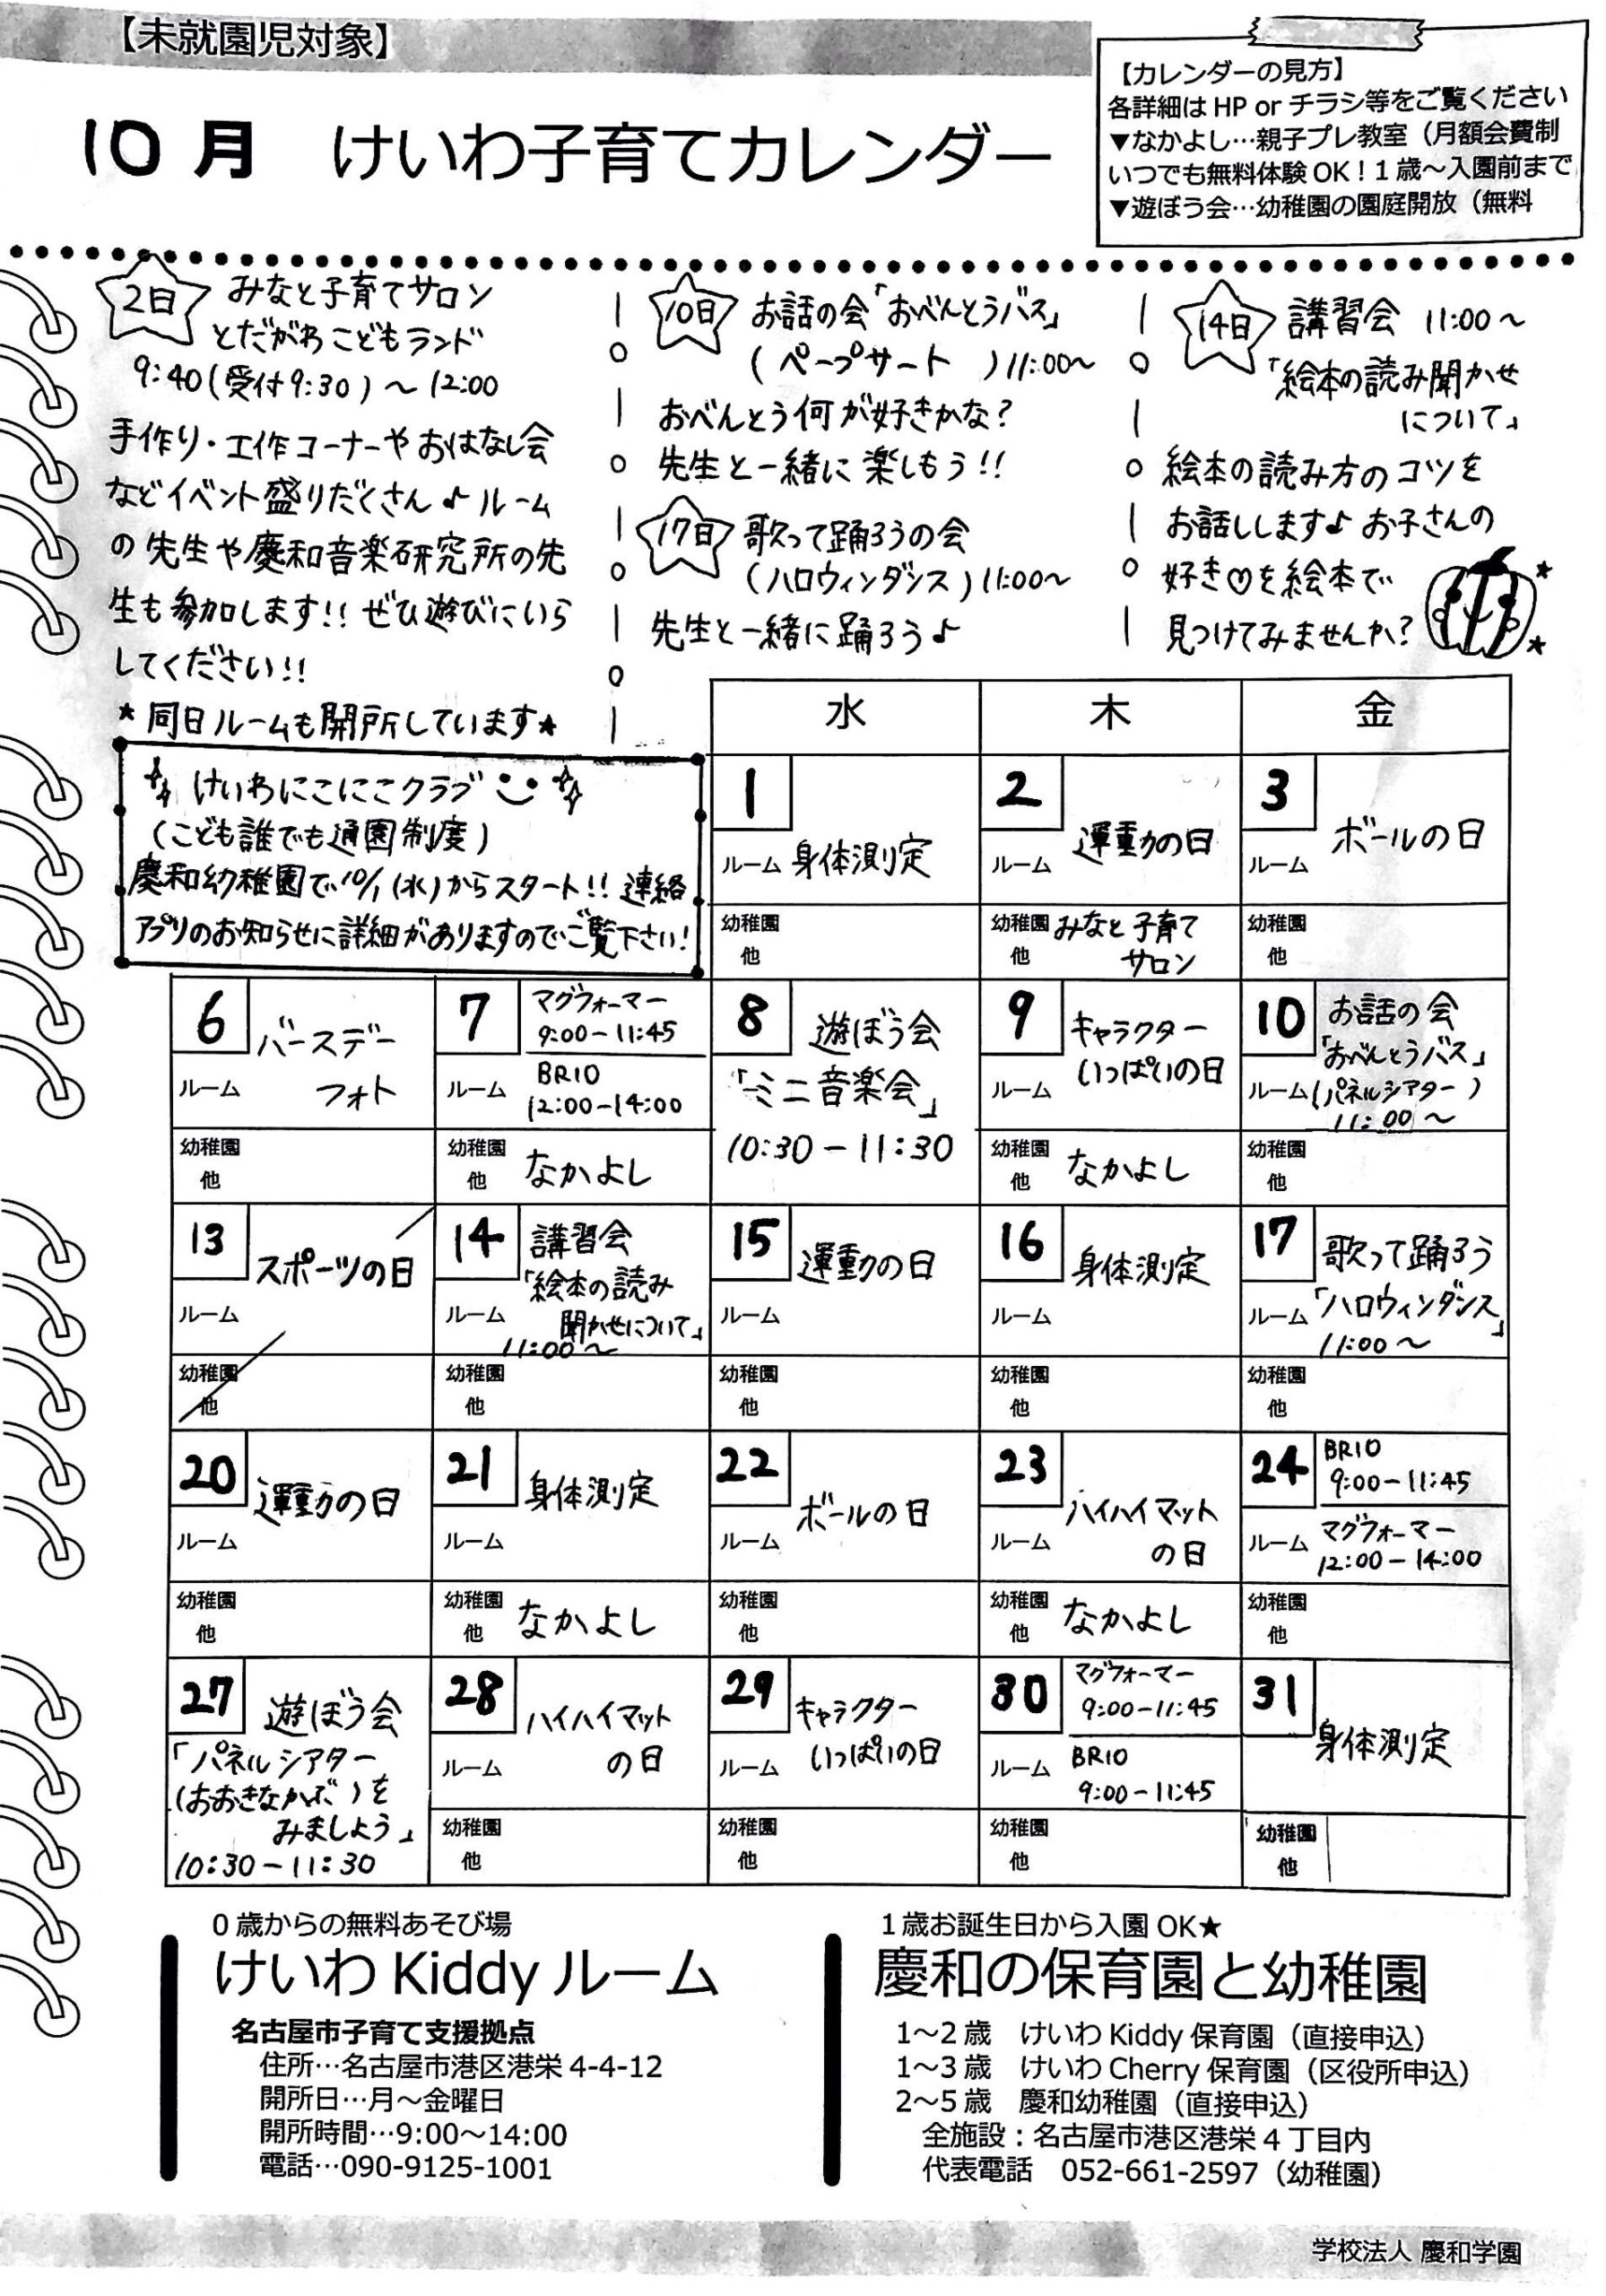 【未就園児対象】
10月 けいわ子育てカレンダー
【カレンダーの見方】
各詳細は HP or チラシ等をご覧ください
▼なかよし…親子プレ教室（月額会費制
いつでも無料体験 OK！1 歳～入園前まで
▼遊ぼう会…幼稚園の園庭開放（無料
2日 みなと子育てサロン
とだがわこどもランド
9:40(受付9:30)～12:00
手作り・工作コーナーやおはなし会
などイベント盛りだくさん♪ルーム
の先生や慶和音楽研究所の先
生も参加します!!ぜひ遊びにいら
してください!!
★同日ルームも開所しています★
10日 お話の会「おべんとうバス」
(ペープサート )11:00～
おべんとう何が好きかな?
先生と一緒に楽しもう!!
17日 歌って踊ろうの会
(ハロウィンダンス)11:00～
先生と一緒に踊ろう♪
14日 講習会 11:00～
「絵本の読み聞かせ
について」
絵本の読み方のコツを
お話しします♪お子さんの
好き♡を絵本で
見つけてみませんか?
けいわにこにこクラブ
(こども誰でも通園制度)
慶和幼稚園で10/1(水)からスタート!!連絡
アプリのお知らせに詳細がありますのでご覧下さい!
水 木 金
1
ルーム 身体測定
幼稚園
他
2
運動の日
ルーム
幼稚園 みなと子育て
他 サロン
3
ボールの日
ルーム
幼稚園
他
6
バースデー
ルーム フォト
幼稚園
他
7 マグフォーマー
9:00-11:45
ルーム BRIO
12:00-14:00
幼稚園
他 なかよし
8 遊ぼう会
「ミニ音楽会」
10:30-11:30
9 キャラクター
ルーム いっぱいの日
幼稚園
他 なかよし
10 お話の会
「おべんとうバス」
ルーム (パネルシアター)
11:00～
幼稚園
他
13
スポーツの日
ルーム
幼稚園
他
14 講習会
「絵本の読み
ルーム 聞かせについて」
11:00～
幼稚園
他
15
運動の日
ルーム
幼稚園
他
16
身体測定
ルーム
幼稚園
他
17 歌って踊ろう
ルーム 「ハロウィンダンス」
11:00～
幼稚園
他
20
運動の日
ルーム
幼稚園
他
21
身体測定
ルーム
幼稚園
他 なかよし
22
ボールの日
ルーム
幼稚園
他
23
ハイハイマット
ルーム の日
幼稚園
他 なかよし
24 BRIO
9:00-11:45
ルーム マグフォーマー
12:00-14:00
幼稚園
他
27 遊ぼう会
「パネルシアター
(おおきなかぶ)を
みましょう」
10:30-11:30
28
ハイハイマット
ルーム の日
幼稚園
他
29 キャラクター
ルーム いっぱいの日
幼稚園
他
30 マグフォーマー
9:00-11:45
ルーム BRIO
9:00-11:45
幼稚園
他
31
身体測定
幼稚園
他
0 歳からの無料あそび場
けいわ Kiddy ルーム
名古屋市子育て支援拠点
住所…名古屋市港区港栄 4-4-12
開所日…月～金曜日
開所時間…9:00～14:00
電話…090-9125-1001
1 歳お誕生日から入園 OK★
慶和の保育園と幼稚園
1～2 歳 けいわ Kiddy 保育園（直接申込）
1～3 歳 けいわ Cherry 保育園（区役所申込）
2～5 歳 慶和幼稚園（直接申込）
全施設：名古屋市港区港栄 4 丁目内
代表電話 052-661-2597（幼稚園）
学校法人 慶和学園